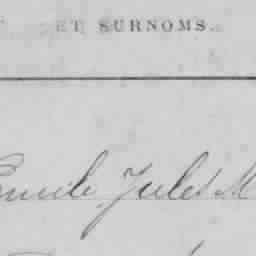 ET SURNOMS.
Emile Jules M